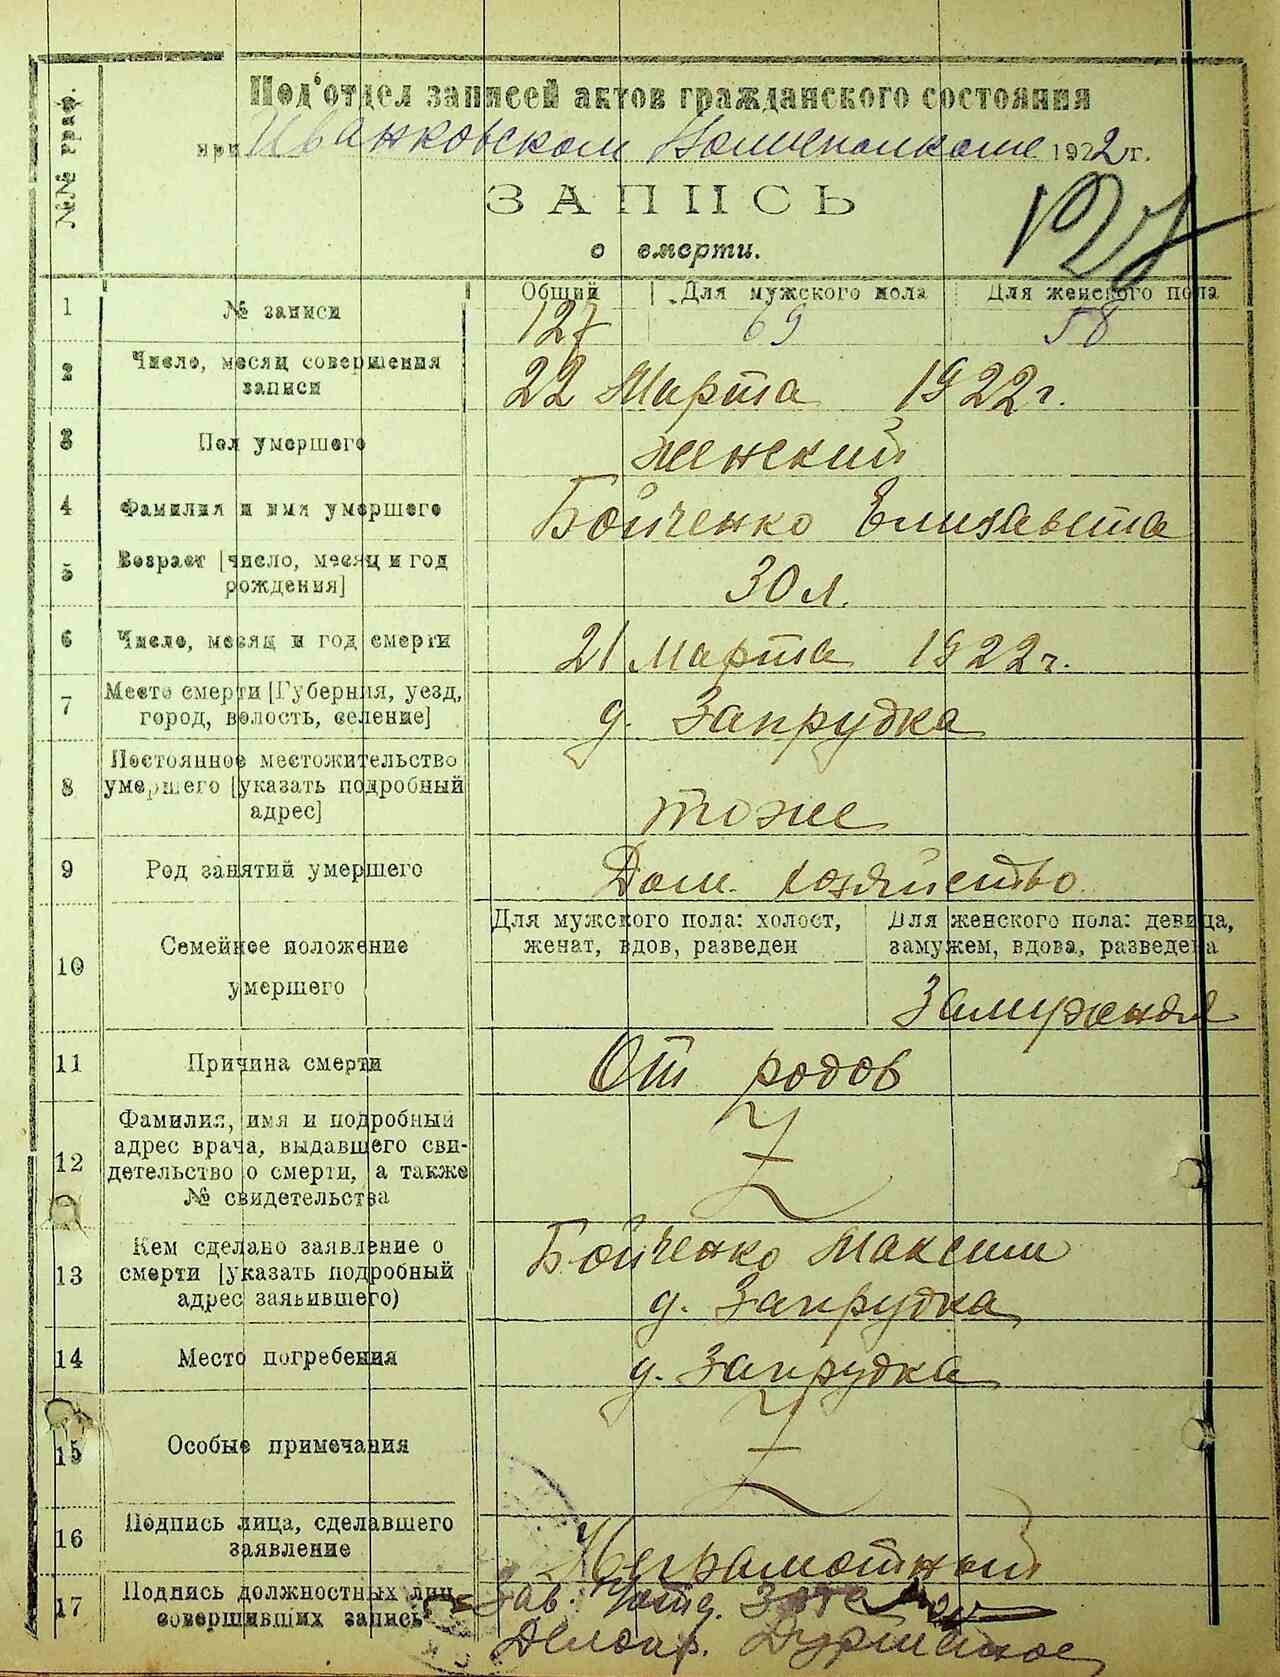 №№ граф.
Под'отдел записей актов гражданского состояния
при Иванковском Волисполкоме 1922 г.
127
ЗАПИСЬ
о смерти.
Общий Для мужского пола Для женского пола
1 № записи 127 69 58
2 Число, месяц совершения
записи 22 Марта 1922 г.
3 Пол умершего женский
4 Фамилия и имя умершего Бойченко Елизавета
5 Возраст [число, месяц и год
рождения] 30 л.
6 Число, месяц и год смерти 21 Марта 1922 г.
7 Место смерти [Губерния, уезд,
город, волость, селение] д. Запрудка
8 Постоянное местожительство
умершего [указать подробный
адрес] тоже
9 Род занятий умершего Дом. хозяйство
10 Семейное положение
умершего
Для мужского пола: холост,
женат, вдов, разведен
Для женского пола: девица,
замужем, вдова, разведена
Замужняя
11 Причина смерти От родов
12 Фамилия, имя и подробный
адрес врача, выдавшего сви-
детельство о смерти, а также
№ свидетельства
13 Кем сделано заявление о
смерти [указать подробный
адрес заявившего) Бойченко Максим
д. Запрудка
14 Место погребения д. Запрудка
15 Особые примечания
16 Подпись лица, сделавшего
заявление Неграмотный
17 Подпись должностных лиц
совершивших запись Зав.
Делопр.